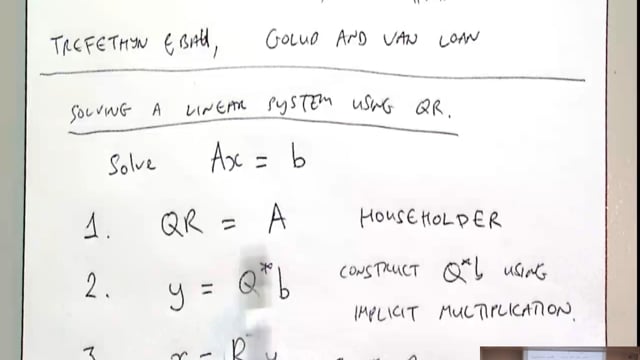 TREFETHYN & BAU, GOLUB AND VAN LOAN
SOLVING A LINEAR SYSTEM USING QR.
Solve Ax = b
1. QR = A HOUSEHOLDER
2. y = Q*b CONSTRUCT Q*b USING
IMPLICIT MULTIPLICATION.
3